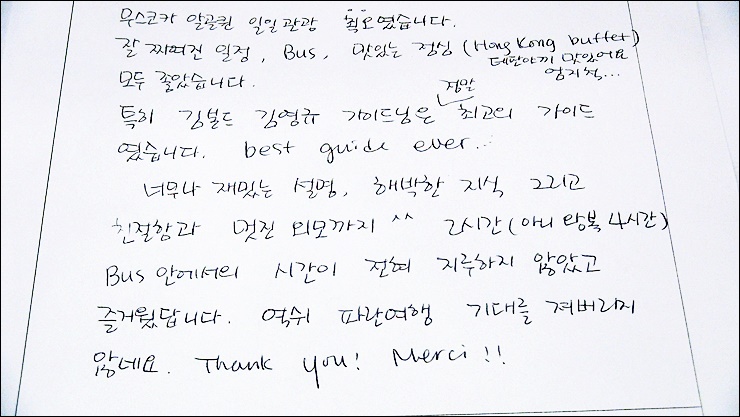 무스코카 알공퀸 일일관광 최고였습니다.
잘 짜여진 일정, Bus, 맛있는 점심 (Hong Kong buffet)
데판야끼 맛있어요
모두 좋았습니다. 엄지척...
정말
특히 김빌드 김영규 가이드님은 최고의 가이드
였습니다. best guide ever...
너무나 재밌는 설명, 해박한 지식 그리고
친절함과 멋진 외모까지 ^^ 2시간(아니 왕복 4시간)
Bus 안에서의 시간이 전혀 지루하지 않았고
즐거웠답니다. 역쉬 파란여행 기대를 져버리지
않네요. Thank you! Merci!!